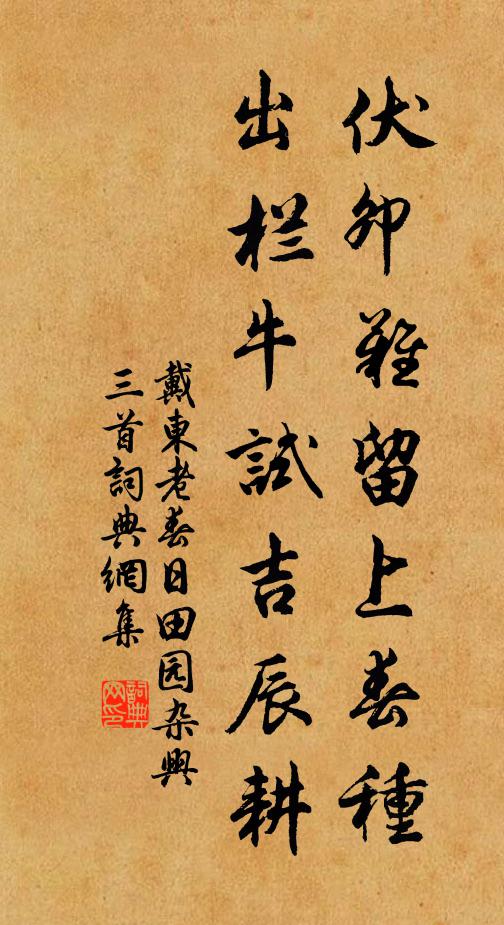 伏卵雞留上春種
出栏牛試吉辰耕
戴東老春日田园杂興
三首詞典網集
詞典
网印